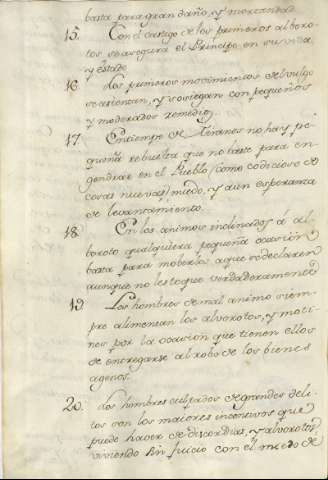 basta para gran daño, y mortandad
15. Con el castigo de los primeros alboro-
tos se asegura el Principe en su vida,
y estado
16. Los primeros movimientos del vulgo
se asientan, y sosiegan con pequeños
y moderados remedios.
17. En tiempo de Tiranos no hay pe-
queña rebuelta que no baste para en-
gendrar en el Pueblo /como codicioso de
cosas nuevas/ miedo, y aun esperanza
de levantamiento.
18. En los animos inclinados á al-
boroto qualquiera pequeña ocasión
basta para moberlos a que se declaren
aunque no les toque verdaderamente
19. Los hombres de mal animo siem-
pre alimentan los alvorotos, y moti-
nes por la ocasion que tienen ellos
de entregarse al robo de los bienes
agenos.
20. Los hombres culpados de grandes deli-
tos son los maiores incentivos que
puede haver de discordias, y alvorotos,
viviendo sin juicio con el miedo de